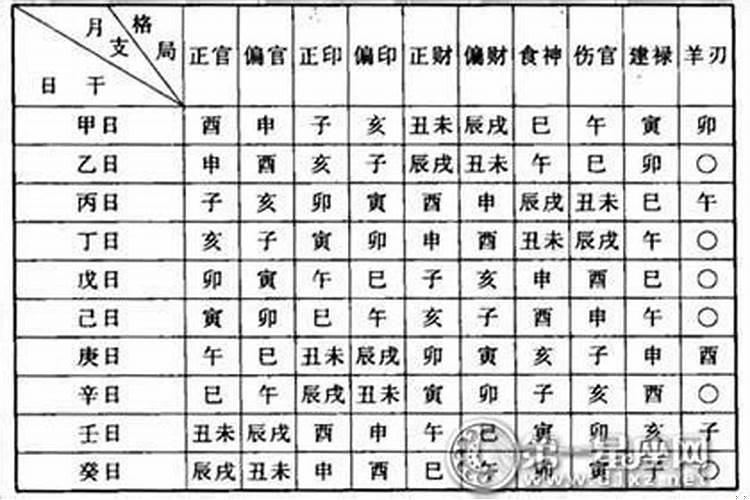 月支 格局 正官 偏官 正印 偏印 正财 偏财 食神 伤官 建禄 羊刃
日干
甲日 酉 申 子 亥 丑未 辰戌 巳 午 寅 卯
乙日 申 酉 亥 子 辰戌 丑未 午 巳 卯 〇
丙日 子 亥 卯 寅 酉 申 辰戌 丑未 巳 午
丁日 亥 子 寅 卯 申 酉 丑未 辰戌 午 〇
戊日 卯 寅 午 巳 子 亥 申 酉 巳 〇
己日 寅 卯 巳 午 亥 子 酉 申 午 〇
庚日 午 巳 丑未 辰戌 卯 寅 亥 子 申 酉
辛日 巳 午 辰戌 丑未 寅 卯 子 亥 酉 〇
壬日 丑未 辰戌 酉 申 午 巳 寅 卯 亥 子
癸日 辰戌 丑未 申 酉 巳 午 卯 寅 子 〇
第一星座网
www.d1xz.net